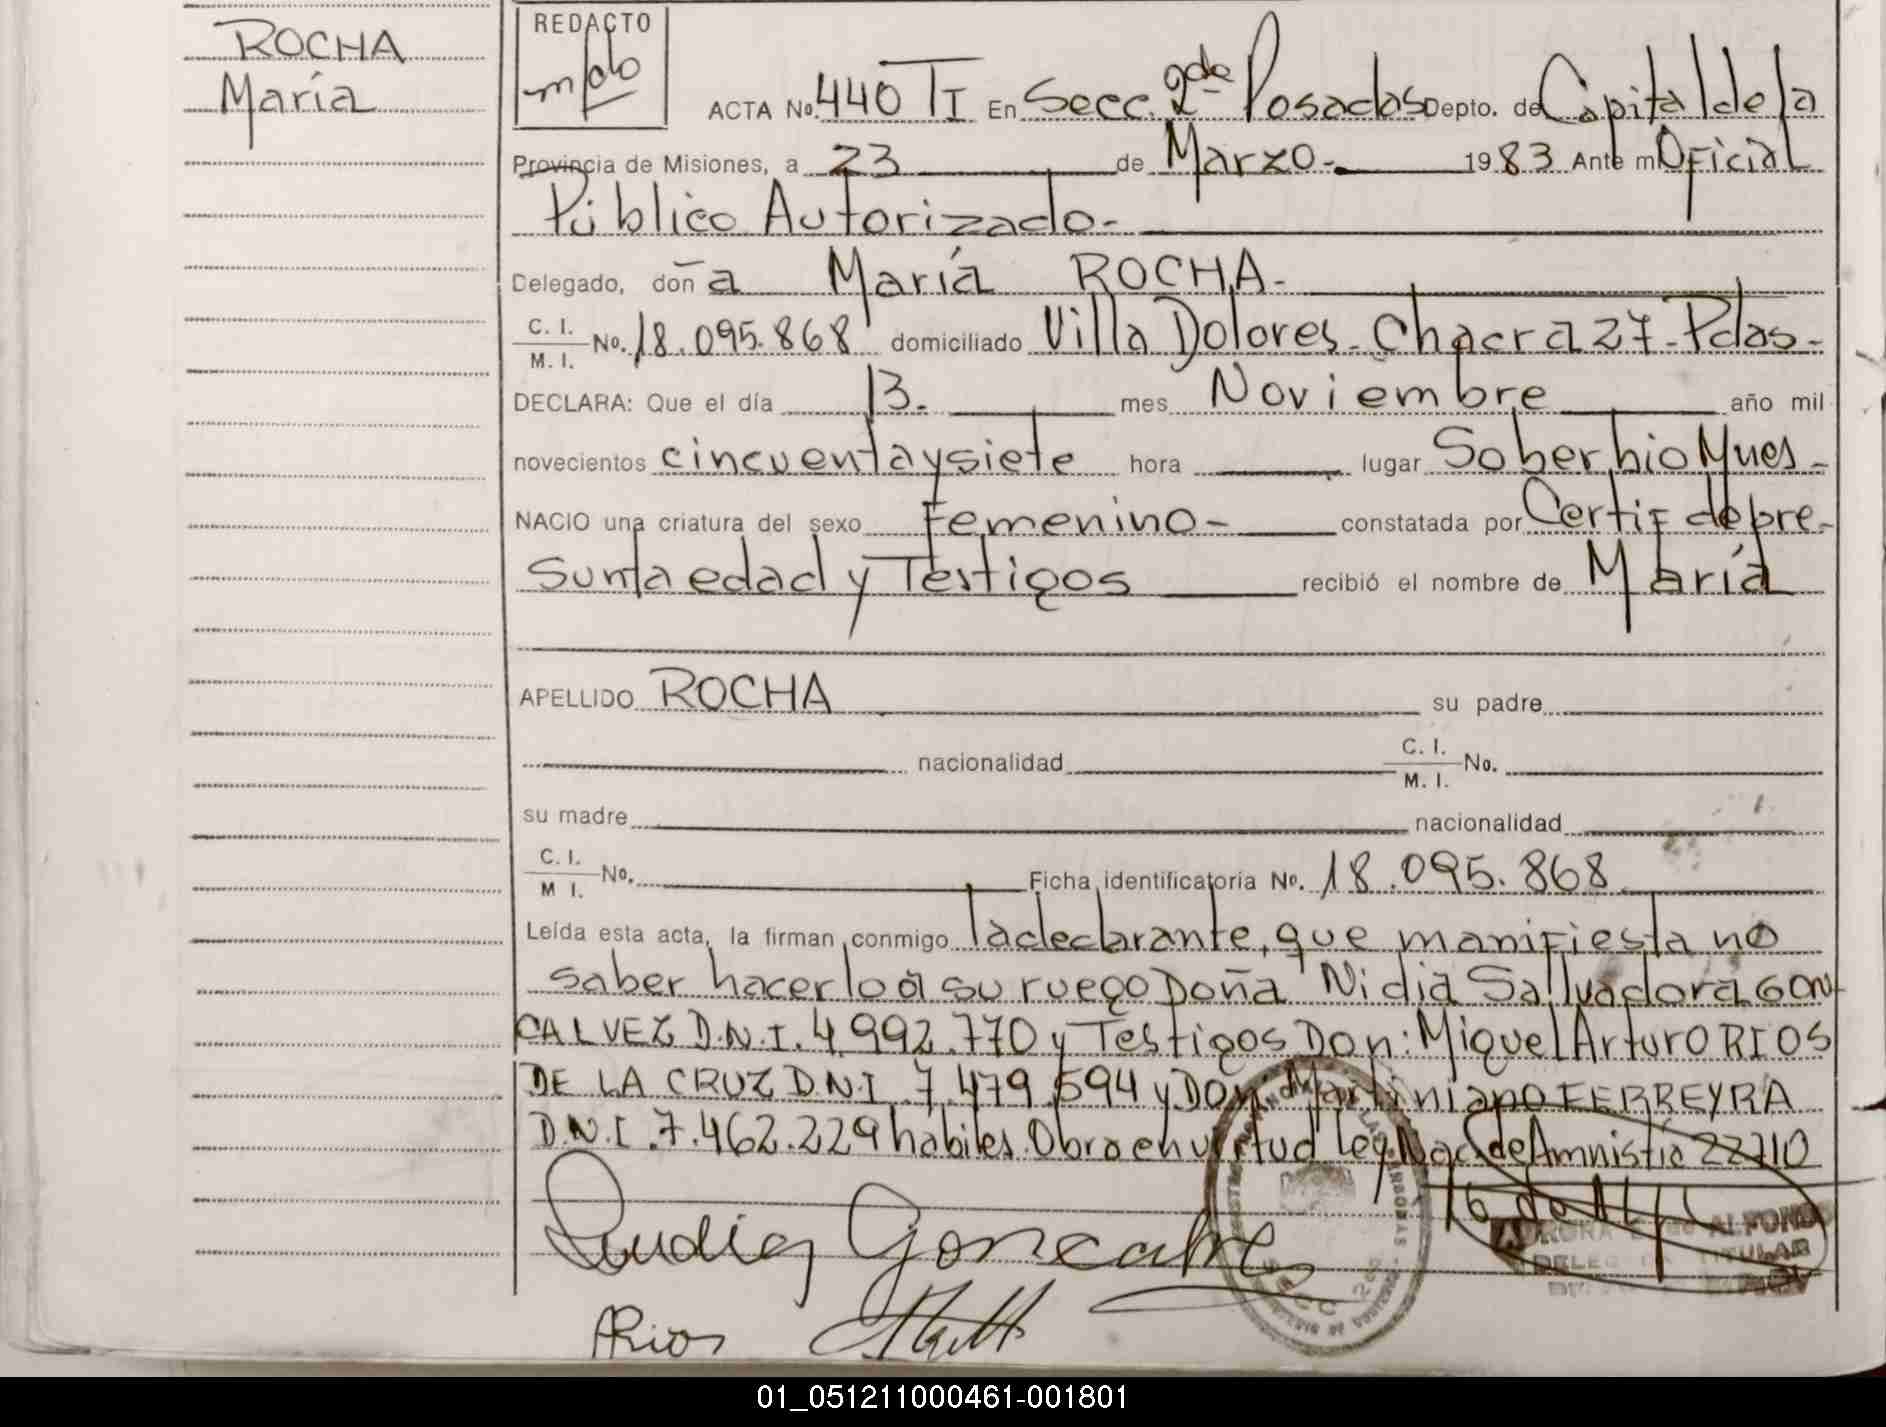 ROCHA
María
REDACTO
ACTA No. 440 TI En Secc. 2da Posadas Depto. de Capital de la
Provincia de Misiones, a 23 de Marzo - 1983 Ante mi Oficial
Público Autorizado -
Delegado, doña María ROCHA -
C. I. / M. I. No. 18.095.868 domiciliado Villa Dolores - Chacra 27 - Pdas -
DECLARA: Que el día 13. mes Noviembre año mil
novecientos cincuentaysiete hora lugar Soberbio Mnes -
NACIO una criatura del sexo Femenino - constatada por Certif de pre-
sunta edad y Testigos recibió el nombre de María
APELLIDO ROCHA su padre
nacionalidad C. I. / M. I. No.
su madre nacionalidad
C. I. / M I. No. Ficha identificatoria No. 18.095.868
Leída esta acta, la firman conmigo la declarante, que manifiesta no
saber hacerlo a su ruego Doña Nidia Sallvadora GON
CALVEZ D.N.I. 4.992.770 y Testigos Don: Miguel Arturo RIOS
DE LA CRUZ D.N.I 7.479.594 y Don: Martiniano FERREYRA
D.N.I. 7.462.229 habiles. Obra en virtud Ley Nac. de Amnistía 22710
ARios
ALFONSO
TITULAR
01_051211000461-001801